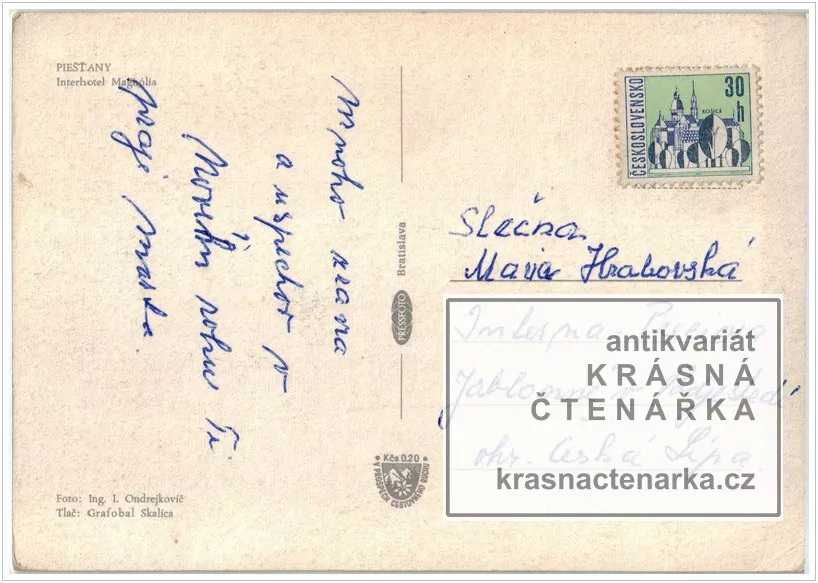 PIEŠŤANY
Interhotel Magnólia
Mnoho zdravia
a uspechov v
Novém roku Ti
praje mamka.
PRESSFOTO Bratislava
Kčs 0,20
V PROSPECH CESTOVNÉHO RUCHU
Foto: Ing. I. Ondrejkovič
Tlač: Grafobal Skalica
ČESKOSLOVENSKO
30 h
KOŠICE
Slečna
Maria Hrabovská
Jablonné v
okr. Česká Lípa
antikvariát
KRÁSNÁ
ČTENÁŘKA
krasnactenarka.cz